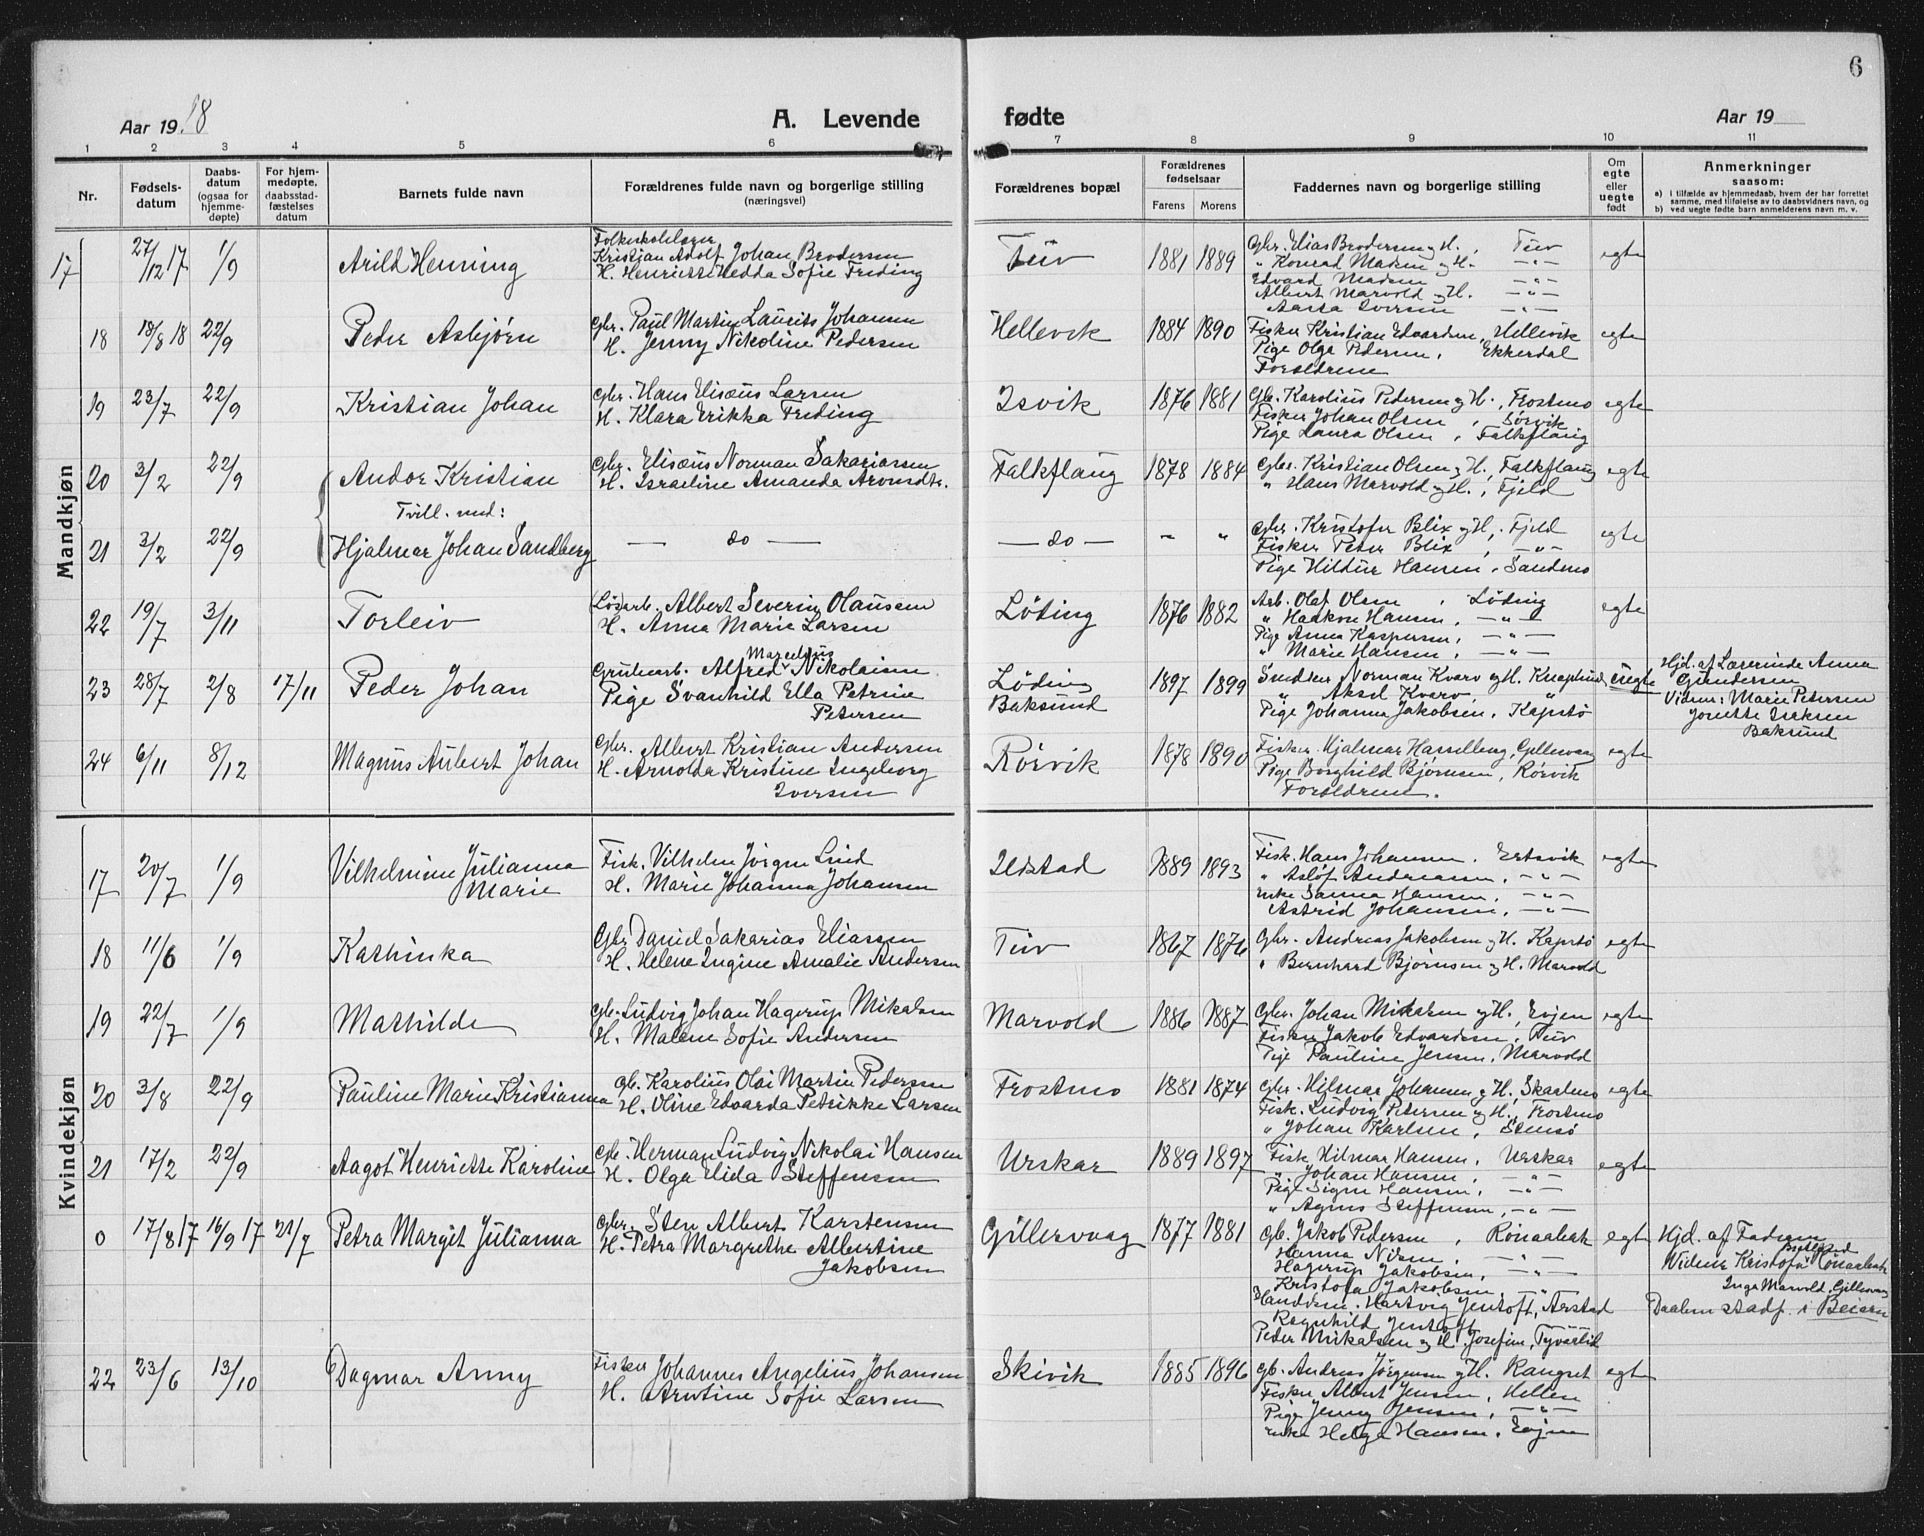 6
Aar 19 18
A. Levende fødte
Aar 19
1 2 3 4 5 6 7 8 9 10 11
Nr.
Fødsels-
datum
Daabs-
datum
(ogsaa for
hjemme-
døpte)
For hjem-
medøpte,
daabsstad-
fæstelses
datum
Barnets fulde navn
Forældrenes fulde navn og borgerlige stilling
(næringsvei)
Forældrenes bopæl
Forældrenes
fødselsaar
Farens Morens
Faddernes navn og borgerlige stilling
Om
egte
eller
uegte
født
Anmerkninger
saasom:
a) i tilfælde av hjemmedaab, hvem der har forrettet
samme, med tilføielse av to daabsvidners navn, og
b) ved uegte fødte barn anmelderens navn m. v.
Mandkjøn
17 27/12 17 1/9 Arild Henning
Folkeskolelærer
Kristian Adolf Johan Brodersen
H. Henriette Hedda Sofie Friding
Tuv 1881 1889
Gbr. Elias Brodersen og H., Tuv
" Konrad Madsen og H. — " —
Edvard Madsen — " —
Albert Marvold og H. — " —
Aasta Iversen — " —
egte
18 18/8 18 22/9 Peder Asbjørn
Gbr. Paul Martin Laurits Johansen
H. Jenny Nikoline Pedersen
Hellevik 1884 1890
Fisker Kristian Edvardsen, Hellevik
Pige Olga Pedersen, Ekkerdal
Forældrene
egte
19 23/7 22/9 Kristian Johan
Gbr. Hans Elisæus Larsen
H. Klara Erikka Friding
Isvik 1876 1881
Gb. Karolius Pedersen og H., Frostmo
Fisker Johan Olsen, Sørvik
Pige Laura Olsen, Falkflaug
egte
20 3/2 22/9 Andor Kristian
Tvill. med:
Gbr. Elisæus Norman Sakariassen
H. Israeline Amanda Arontdtr.
Falkflaug 1878 1884
Gbr. Kristian Olsen og H., Falkflaug
" Hans Marvold og H., Fjeld
egte
21 3/2 22/9 Hjalmar Johan Sandberg
— do —
— do — " "
Gbr. Kristofer Blix og H., Fjeld
Fisker Peter Blix, — " —
Pige Hildur Hansen, Sandmo
egte
22 19/7 3/11 Torleiv
Løsarb. Albert Severin Olausen
H. Anna Marie Larsen
Løding 1876 1882
Arb. Olaf Olsen, Løding
" Haakon Hansen, — " —
Pige Anna Kaspersen, — " —
" Marie Hansen, — " —
egte
23 28/7 2/8 17/11 Peder Johan
Grubearb. Alfred Marelius Nikolaisen
Pige Svanhild Ella Petrine
Petersen
Løding
Baksund 1897 1899
Smeden Norman Kvarv og H. Knaplund
" Aksel Kvarv "
Pige Johanna Jakobsen, Kapstø
uegte
Hjd. af Lærerinde Anna
Gundersen
Vidner: Marie Petersen
Josette Eriksen
Baksund
24 6/11 8/12 Magnus Aubert Johan
Gbr. Albert Kristian Andersen
H. Arnolda Kristine Ingeborg
Iversen
Rørvik 1878 1890
Fisker Hjalmar Hasselberg, Gillesvaag
Pige Borghild Bjørnsen, Rørvik
Forældrene.
egte
Kvindekjøn
17 20/7 1/9 Vilhelmine Julianna
Marie
Fisk. Vilhelm Jørgen Lind
H. Marie Johanna Johansen
Ildstad 1889 1893
Fisk. Hans Johansen, Ertsvik
" Asløf Andreassen, — " —
enke Sanna Hansen, — " —
Astrid Johansen, — " —
egte
18 11/6 1/9 Kathinka
Gbr. Daniel Sakarias Eliassen
H. Helene Ingine Amalie Andersen
Tuv 1867 1876
Gbr. Andreas Jakobsen og H. Kapstø
" Bernhard Bjørnsen og H. Marvold
egte
19 22/7 1/9 Mathilde
Gb. Ludvig Johan Hagerup Mikalsen
H. Malene Sofie Andersen
Marvold 1886 1887
Gbr. Johan Mikalsen og H., Evjen
Fisker Jakob Edvardsen, Tuv
Pige Pauline Jensen, Marvold
egte
20 3/8 22/9 Pauline Marie Kristianna
Gb. Karolius Olai Martin Pedersen
H. Oline Edvarda Petrikke Larsen
Frostmo 1881 1874
Gbr. Hilmar Johansen og H., Skaadmo
Fisk. Ludvig Petersen og H., Frostmo
" Johan Karlsen, Stensø
egte
21 17/2 22/9 Aagot Henriette Karoline
Gb. Herman Ludvig Nikolai Hansen
H. Olga Elida Steffensen
Urskar 1889 1897
Fisk. Hilmar Hansen, Urskar
" Johan Hansen, — " —
Pige Signe Hansen, — " —
" Agnes Steffensen, — " —
egte
0 17/8 17 16/9 17 21/7 Petra Margit Julianna
Gbr. Sten Albert Karstensen
H. Petra Margrethe Albertine
Jakobsen
Gillesvaag 1877 1881
Gb. Jakob Pedersen, Rønaabak
Hanna Nilsen,
Hagerup Jakobsen, — " —
Kristofa Jakobsen, "
Handelsm. Hartvig Jentoft, Arstad
Ragnhild Jentoft
Peder Mikalsen og H. Josefine, Tyvarlid
egte
Hjd. af Faderen
Vidne Kristofa Rønaabak
Inga Marvold, Gillesvaag
Daaben stadf. i Beiarn
22 23/6 13/10 Dagmar Anny
Fisker Johannes Angelius Johansen
H. Arntine Sofie Larsen
Skivik 1885 1896
Gb. Andreas Jørgensen og H. Kangset
Fisker Albert Jensen, Hellen
Pige Jenny Jensen, — " —
enke Helga Hansen, Evjen
egte